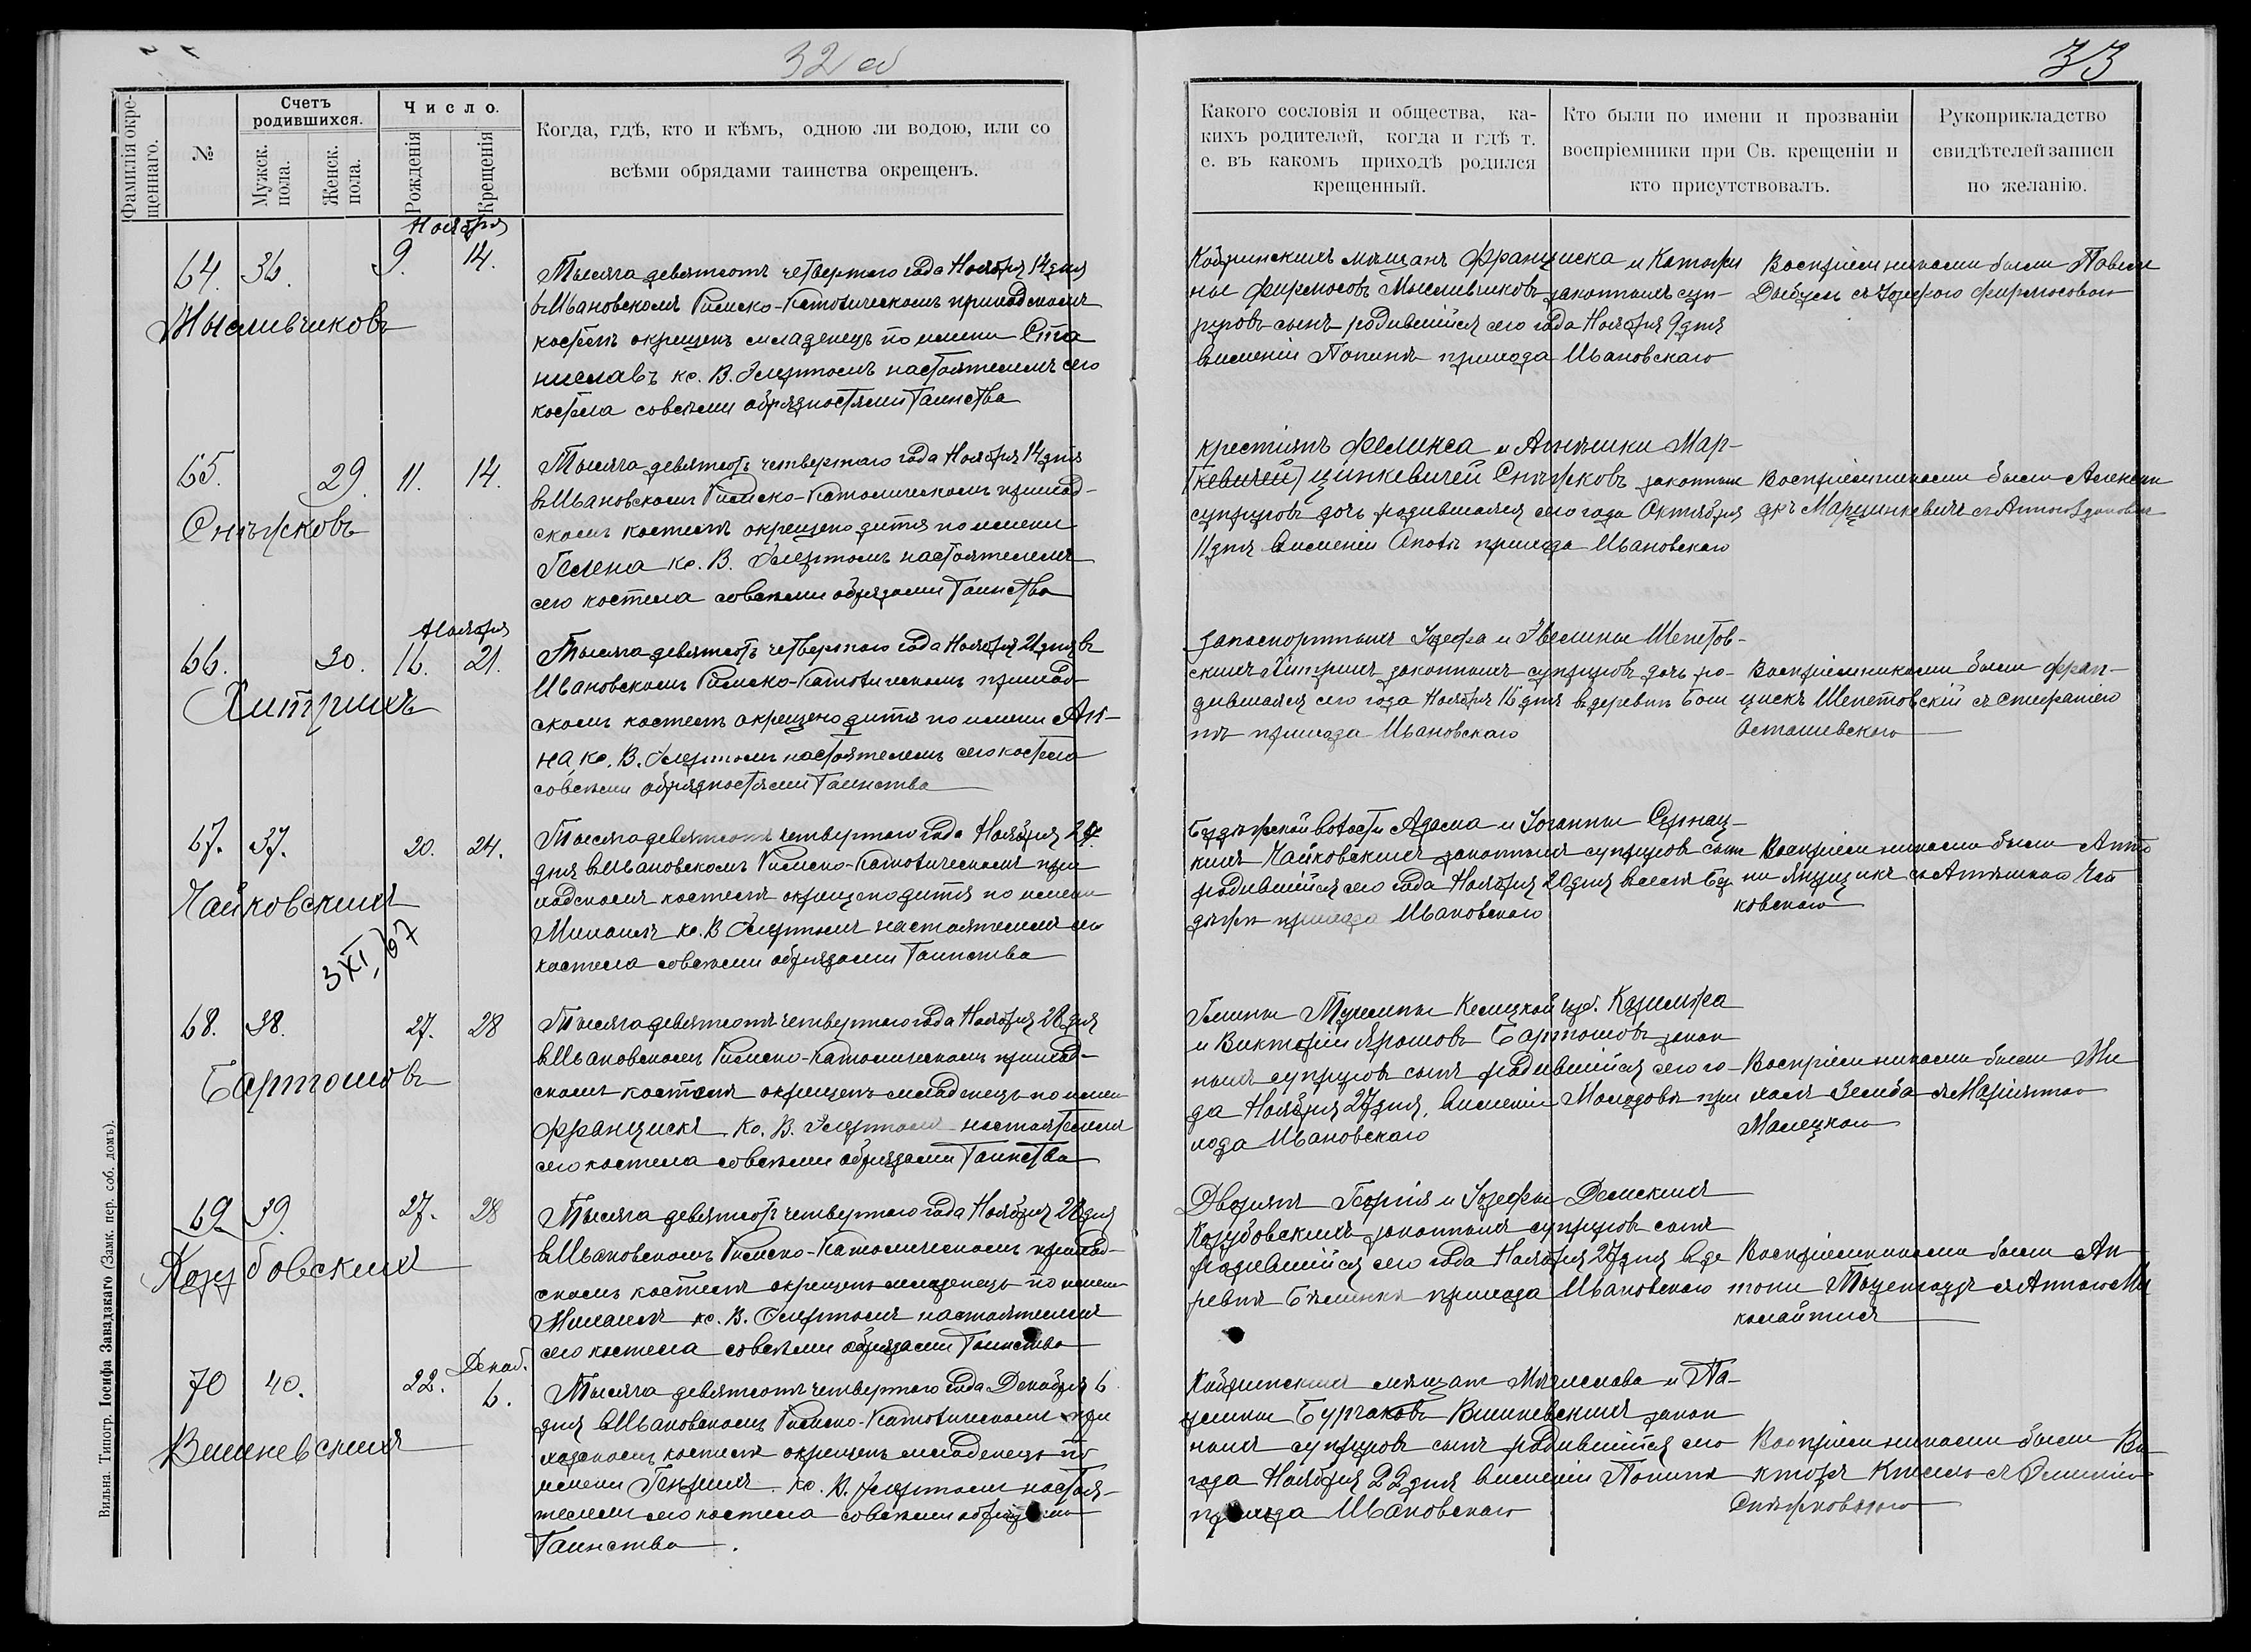 32 об
Фамилія окре-
щеннаго.
№
Счетъ
родившихся.
Мужск.
пола.
Женск.
пола.
Число.
Рожденія
Крещенія
Когда, гдѣ, кто и кѣмъ, одною ли водою, или со
всѣми обрядами таинства окрещенъ.
Ноября
64. 36. 9. 14.
Мысливчиковъ
Тысяча девятсотъ четвертого года Ноября 14 дня
въ Ивановскомъ Римско-Католическомъ приходскомъ
костелѣ окрещенъ младенецъ по имени Ста
ниславъ кс. В. настоятелемъ сего
костела совсѣми обрядностями Таинства
65. 29. 11. 14.
Снѣжковъ
Тысяча девятсотъ четвертаго года Ноября 14 дня
въ Ивановскомъ Римско-Католическомъ приход-
скомъ костелѣ окрещено дитя по имени
Гелена кс. В. настоятелемъ
сего костела совсѣми обрядами Таинства
Ноября
66. 30. 16. 21.
Хитрихъ
Тысяча девятсотъ четвертаго года Ноября 21 дня въ
Ивановскомъ Римско-Католическомъ приход-
скомъ костелѣ окрещено дитя по имени Ан-
на кс. В. настоятелемъ сего костела
совсѣми обрядностями Таинства
67. 37. 20. 24.
Чайковскихъ
3 XI, 67
Тысяча девятсотъ четвертаго года Ноября 24
дня въ Ивановскомъ Римско-Католическомъ при
ходскомъ костелѣ окрещено дитя по имени
Михаилъ кс. В. настоятелемъ сего
костела совсѣми обрядами Таинства
68. 38. 27. 28
Бартошовъ
Тысяча девятсотъ четвертаго года Ноября 28 дня
въ Ивановскомъ Римско-Католическомъ приход-
скомъ костелѣ окрещенъ младенецъ по имени
Францискъ Кс. В. настоятелемъ
сего костела совсѣми обрядами Таинства
69. 39. 27. 28
Козубовскихъ
Тысяча девятсотъ четвертаго года Ноября 28 дня
въ Ивановскомъ Римско-Католическомъ приход-
скомъ костелѣ окрещенъ младенецъ по имени
Михаилъ кс. В. настоятелемъ
сего костела совсѣми обрядами Таинства
Декаб.
70 40. 22. 6.
Вишневскихъ
Тысяча девятсотъ четвертаго года Декабря 6
дня въ Ивановскомъ Римско-Католическомъ при
ходскомъ костелѣ окрещенъ младенецъ по
имени Генрихъ. Кс. В. настоя-
телемъ сего костела совсѣми обрядами
Таинства.
Вильна. Типогр. Іосифа Завадзкаго (Замк. пер. соб. домъ).
33
Какого сословія и общества, ка-
кихъ родителей, когда и гдѣ т.
е. въ какомъ приходѣ родился
крещенный.
Кто были по имени и прозваніи
воспріемники при Св. крещеніи и
кто присутствовалъ.
Рукоприкладство
свидѣтелей записи
по желанію.
Кобринскихъ мѣщанъ Франциска и Катари
ны Фирмосовъ Мысливчиковъ законныхъ суп-
руговъ сынъ родившійся сего года Ноября 9 дня
въ имѣніи Попинѣ прихода Ивановскаго
Воспріемниками были Павелъ
съ Юзефою Фирмосовою
крестіянъ Феликса и Агнешки Мар-
[кевичей] цинкевичей Снѣжковъ законныхъ
супруговъ дочь родившаяся сего года Октября
11 дня въ имѣніи Опотѣ прихода Ивановскаго
Воспріемниками были Алексан
дръ Марцинкевичъ съ Антою
Запаспортныхъ Іозефа и Эвелины Шепетов-
скихъ Хитрихъ законныхъ супруговъ дочь ро-
дившаяся сего года Ноября 16 дня въ деревнѣ
прихода Ивановскаго
Воспріемниками были Фран-
цискъ Шепетовскій съ Стефаніею
Осташевскою
волости Адама и Іоганны
Чайковскихъ законныхъ супруговъ сынъ
родившійся сего года Ноября 20 дня въ
прихода Ивановскаго
Воспріемниками были Анто
ни съ Агнешкою Чай
ковскою
Гмины Тучемпы Кѣлецкой губ. Казимѣра
и Викторіи Ярошовъ Бартошовъ закон
ныхъ супруговъ сынъ родившійся сего го-
да Ноября 27 дня, въ имѣніи Молодовѣ при
хода Ивановскаго
Воспріемниками были Ми
халъ Земба съ Маріянною
Малецкою
Дворянъ Георгія и Іозефы Демскихъ
Козубовскихъ законныхъ супруговъ сынъ
родившійся сего года Ноября 27 дня въ де
ревнѣ прихода Ивановскаго
Воспріемниками были Ан
тони съ Анною Ми
Кобринскихъ мѣщанъ Мѣчислава и Па-
улины Бурчаковъ Вишневскихъ закон
ныхъ супруговъ сынъ родившійся сего
года Ноября 22 дня въ имѣніи Попинѣ
прихода Ивановскаго
Воспріемниками были Ви-
кторъ съ Эмиліею
Снѣжковскою